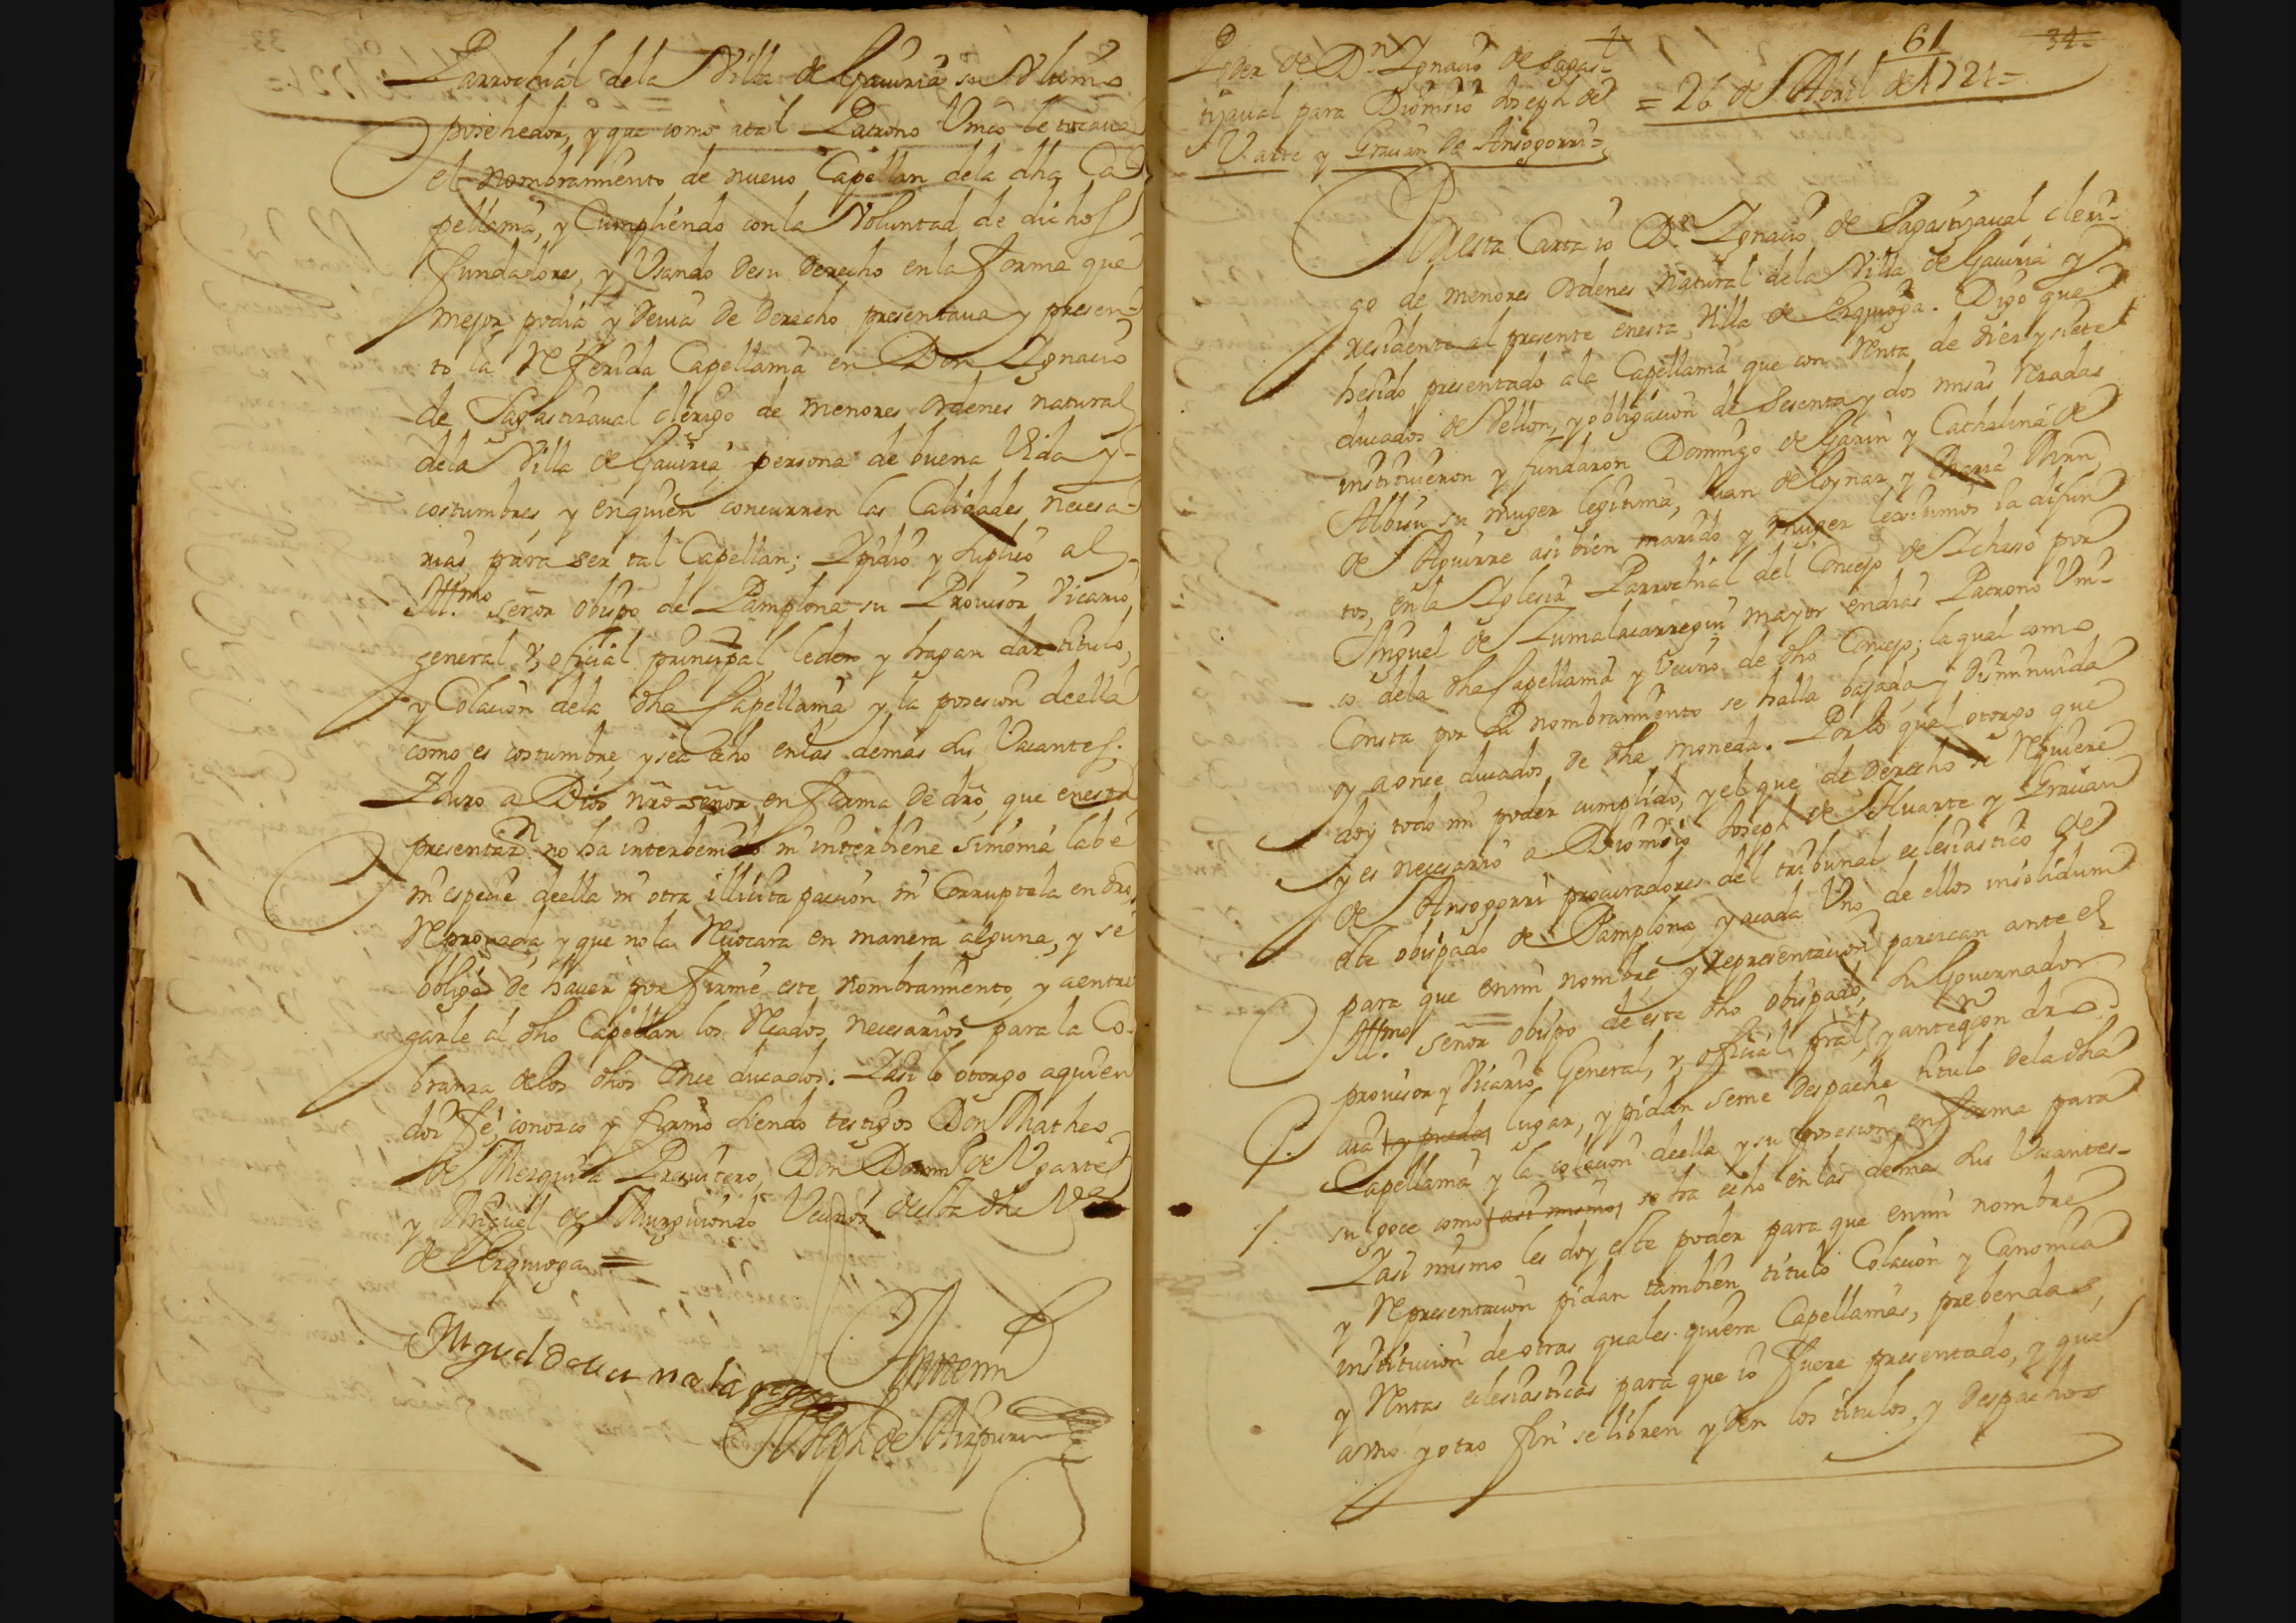 Parrochial dela Villa de Gauiria su Vltimo
posehedor, y que como atal Patrono Vnico le tocaua
el nombramiento de nueuo Capellan dela dha Ca-
pellania, y Cumpliendo con la Voluntad de dichos
fundadores, y Vsando desu derecho en la forma que
mejor podia y deuia de derecho presentaua y presen-
to la Referida Capellania en Don Ignacio
de Sagastizaual clerigo de menores ordenes natural
dela Villa de Gauiria, persona de buena Vida y
costumbres, y enquien concurren las Calidades necesa-
rias para ser tal Capellan; Ypidio y suplico al
Illmo. señor obispo de Pamplona su Prouisor Vicario
general y oficial principal leden y hagan dar titulo,
y Colacion dela dha Capellania y la posesion deella
como es costumbre, y sea echo enlas demas sus Vacantes;
Yjuro a Dios nro señor en forma de dro, que enesta
presentazn. no ha interbenido ni interbiene simonia labe
ni especie deella ni otra illicita paccion ni Corruptela en dro
Reprouada, y que no la Reuocara en manera alguna, y se
obligo de hauer por firme este nombramiento, y aentre
garle al dho Capellan los Recados necesarios para la Co-
branza delos dhos Once ducados. Yasi lo otorgo aquien
doi fe conozco y firmo siendo testigos Don Matheo
de Mezquia Presuitero, Don Domingo de Vgarte
y Miguel de Murguiondo Vecinos desta dha Va
de Ezquioga =
Miguel de
Antemi
Joseph de Aizpuru
61
34.
Poder de Dn. Ignacio de Sagas-
tizaual para Dionisio Joseph de
Varte y Grauan de Ansogorri =
= 26 de Abril de 1721 =
Por esta Carta io Dn. Ignacio de Sagastizaual cleri-
go de menores ordenes natural dela Villa de Gauiria y
residente al presente enesta Villa de Ezquioga. Digo que
hesido presentado ala Capellania que con Renta de diez y siete
ducados de Vellon, y obligacion de sesenta y dos misas Rezadas
instituieron y fundaron Domingo de Garin y Cathalina de
Albisu su muger legitima, Juan de Loynaz y Maria Juan
de Aguirre asi bien marido y muger lexitimos ia difun
tos, enla Yglesia Parrochial del Concejo de Ychaso por
Miguel de Zumalacarregui mayor endias Patrono Vni-
co dela dha Capellania y Vecino de dho Concejo; la qual como
Consta por su nombramiento se halla bajada y disminuida
oy aonce ducados de dha moneda. Por lo qual otorgo que
doy todo mi poder cumplido, y el que de derecho se Requiere
y es necesario a Dionisio Joseph de Huarte y Grauan
de Ansogorri procuradores del tribunal eclesiastico de
este obispado de Pamplona, y acada Vno de ellos insolidum
para que enmi nombre y representacion parezcan ante el
Illmo. señor obispo de este dho obispado, su Gouernador
prouisor y Vicario General, y oficial pral, y antequien dro
aia y pueda lugar, y pidan seme despache titulo dela dha
Capellania y la colacion deella y su posesion en forma para
su goce como asi mismo se ha echo en las demas sus Vacantes-
Yasi mismo les doy este poder para que enmi nombre
y Representacion pidan tambien titulo Colacion y Canonica
institucion de otras quales quiera Capellanias, prebendas,
y Rentas eclesiasticas para que io fuere presentado, y que
avno y otro fin se libren y den los titulos, y despachos